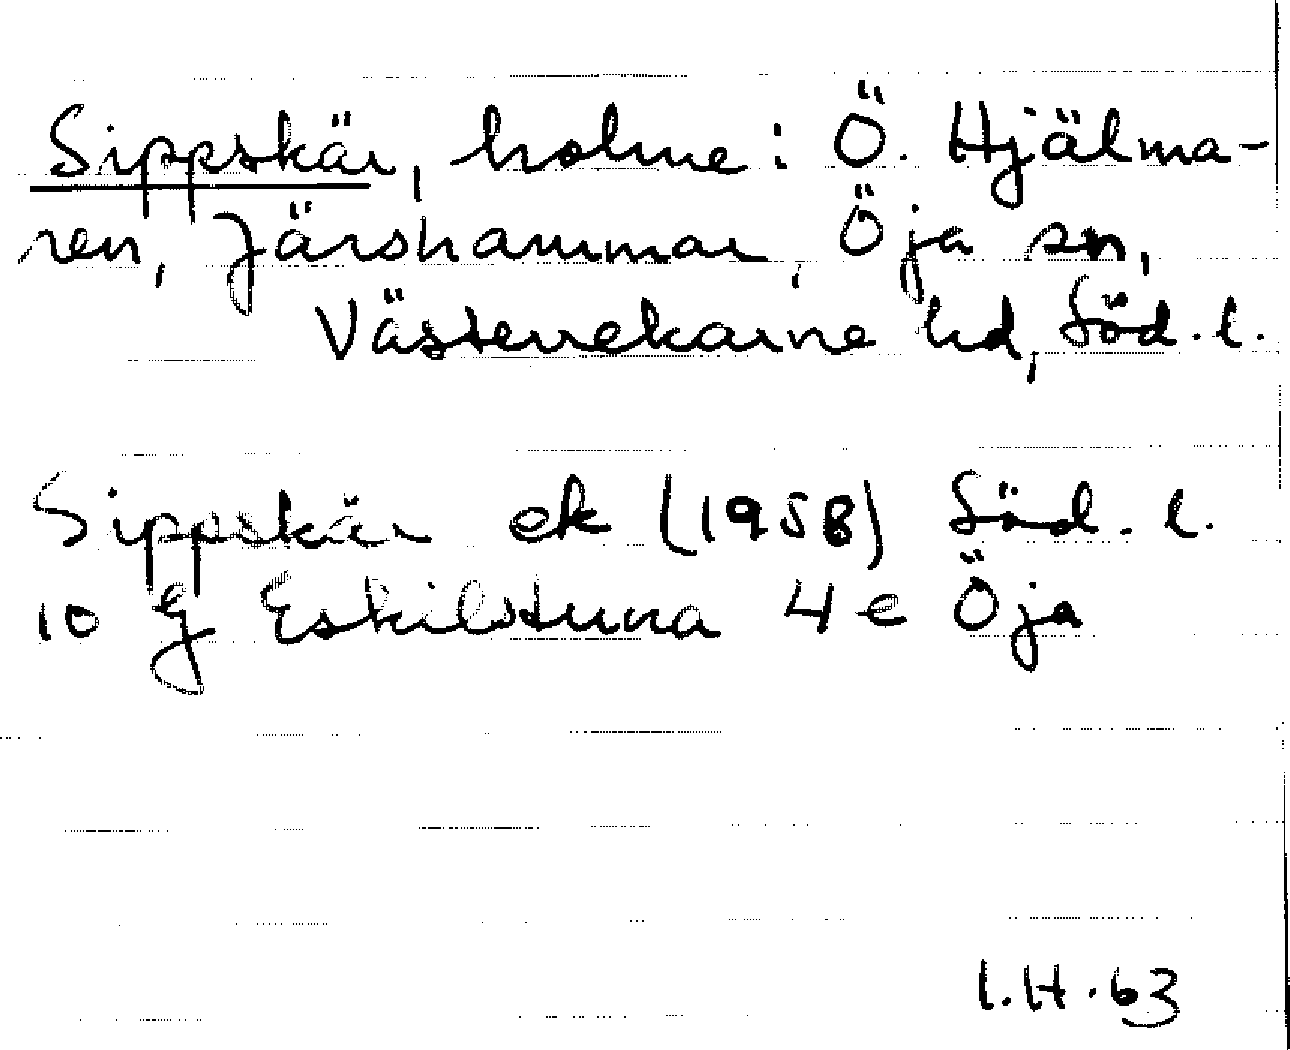 Sippskär, holme i Ö. Hjälma-
ren, Järshammar, Öja sn,
Västerrekarne hd, Söd. l.
Sippskär ek (1958) Söd. l.
10 g Eskilstuna 4 e Öja
I.H.63